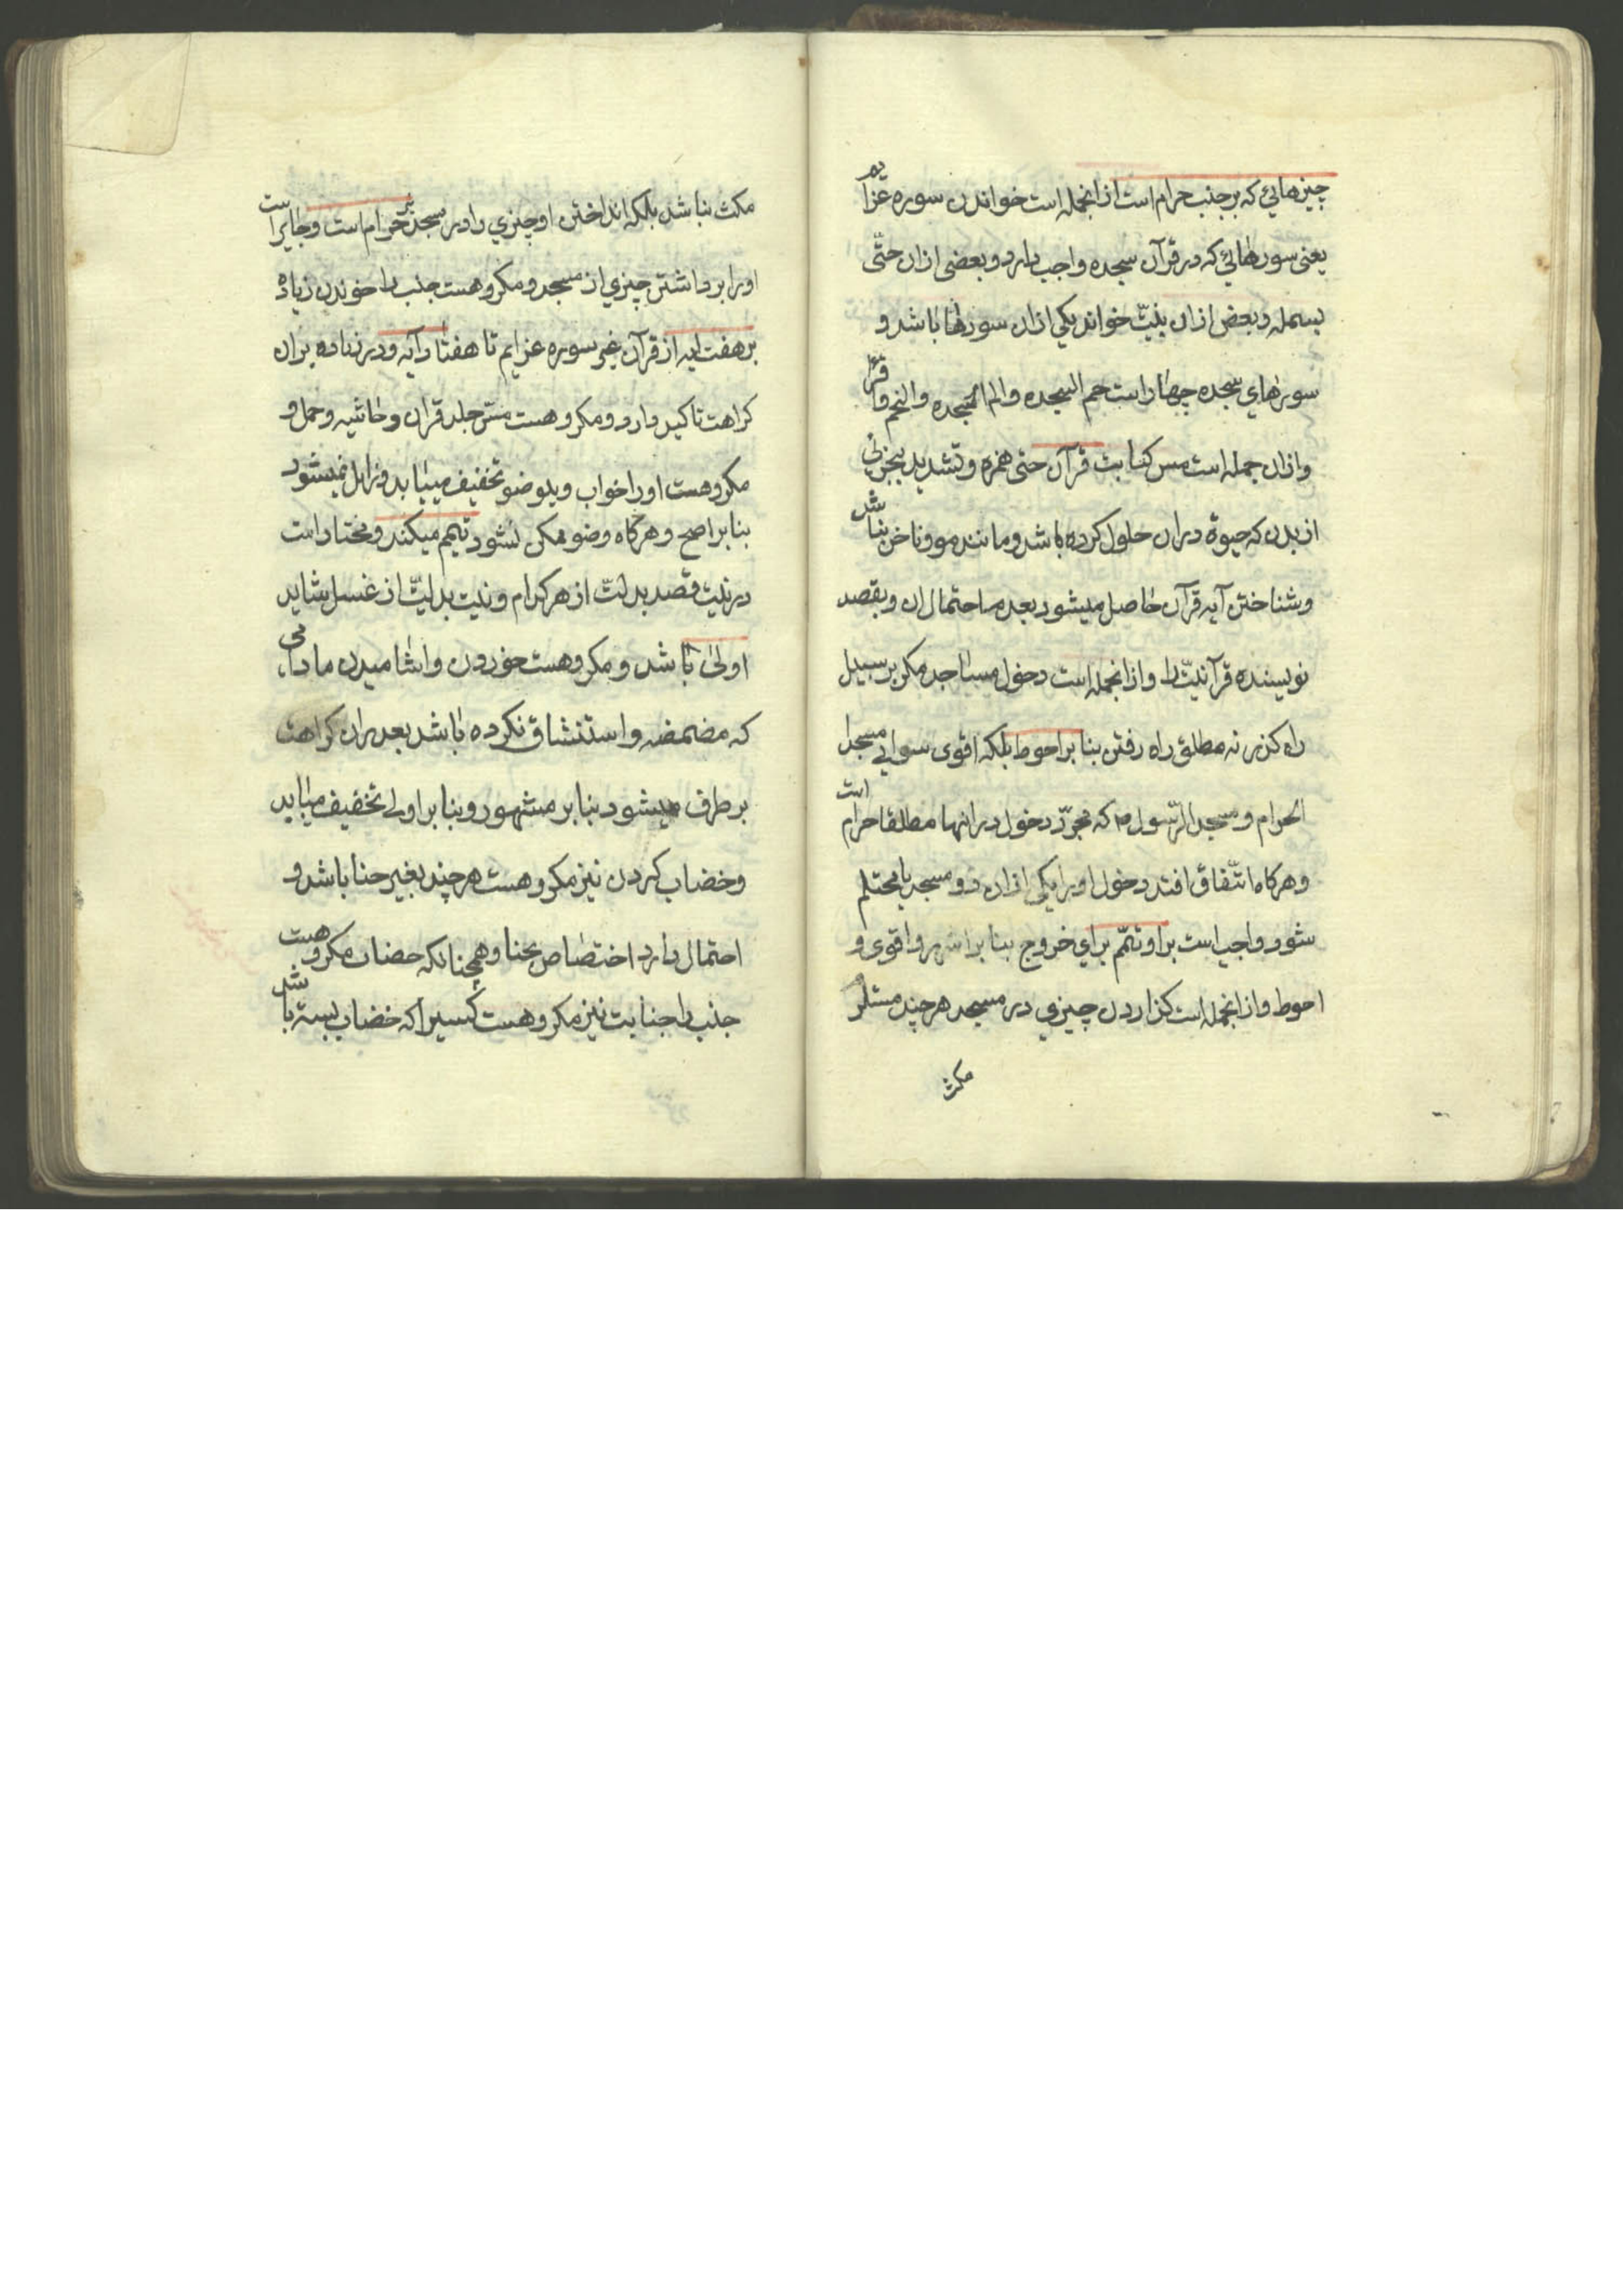 چیزهایی که بر جنب حرام است ازانجمله است خواندن سوره عزایم
یعنی سورهائی که در قرآن سجده واجب دارد و بعضی ازان حتّی
بسمله و بعض ازان بنیّت خواند یکی ازان سورها باشد و
سورهای سجده چهار است حم السجده و الم السجده و النجم و اقرء
وازان جمله است مس کتابت قرآن حتی همزه و تشدید بجزئی
از بدن که حیوة دران حلول کرده باشد و مانند مو و ناخن نباشد
و شناختن آیه قرآن حاصل میشود بعدم احتمال ان و بقصد
نویسنده قرآنیّت را وازانجمله است دخول مساجد مکر بر سبیل
راه کذر نه مطلق راه رفتن بنا بر احوط بلکه اقوی سوای مسجد
الحرام و مسجد الرّسول ص که مجرّد دخول در انها مطلقا حرام است
و هرکاه اتّفاق افتد دخول اورا یکی ازان دو مسجد یا محتلم
شود واجب است بر او تیمّم برای خروج بنا بر اشهر و اقوی و
احوط وازانجمله است کذاردن چیزی در مسجد هرچند مستلزم
مکث
مکث نباشد بلکه انداختن او چیزی را در مسجد نیز حرام است و جایز است
اورا برداشتن چیزی از مسجد و مکروهست جنب را خوندن زیاده
بر هفت ایه از قرآن غیر سوره عزایم تا هفتاد آیه و در زیاده بران
کراهت تاکید دارد و مکروهست مسّ جلد قران و حاشیه و حمل و
مکروهست اورا خواب و بوضو تخفیف مییابد و زایل نمیشود
بنا بر اصح و هرکاه وضو ممکن نشود تیمم میکند و مختار است
در نیت قصد بدلیّت از هر کدام و نیت بدلیّت از غسل شاید
اولی باشد و مکروهست خوردن و اشامیدن مادامی
که مضمضه و استنشاق نکرده باشد بعد بران کراهت
بر طرف میشود بنا بر مشهور و بنا بر اولی تخفیف مییابد
و خضاب کردن نیز مکروهست هرچند بغیر حنا باشد و
احتمال دارد اختصاص بحنا و همچنانکه خضاب مکروهست
جنب را جنابت نیز مکروهست کسیرا که خضاب بسته باشد